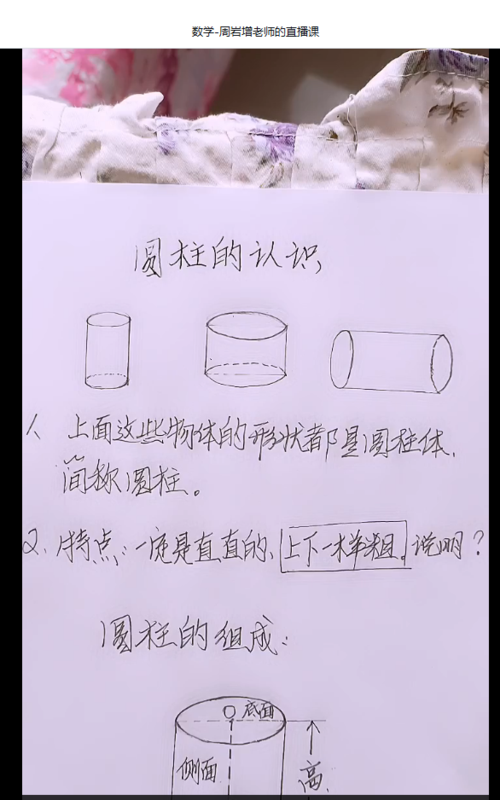 数学-周岩增老师的直播课
圆柱的认识
1、上面这些物体的形状都是圆柱体、
简称圆柱。
2、特点：一定是直直的、上下一样粗。说明？
圆柱的组成：
O 底面
侧面
高